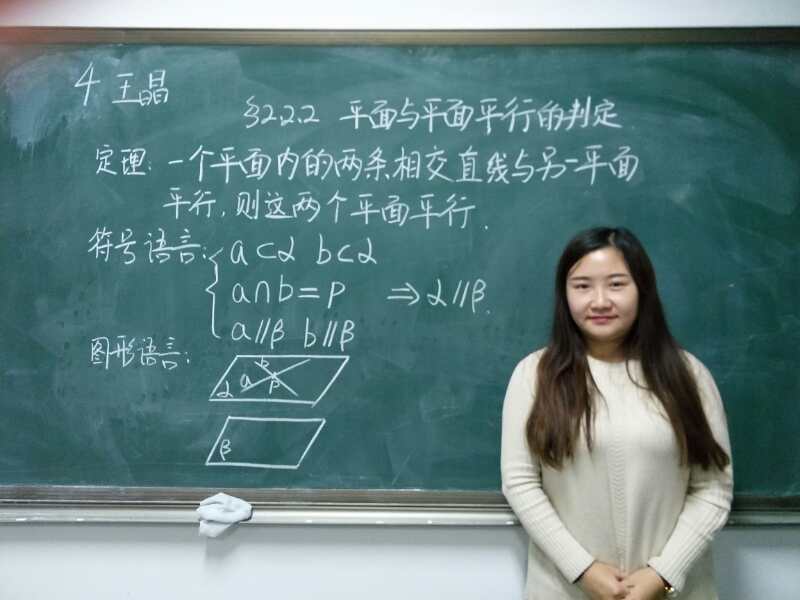 4 王晶
§2.2.2 平面与平面平行的判定
定理：一个平面内的两条相交直线与另一平面
平行，则这两个平面平行．
符号语言：a⊂α b⊂α
a∩b=P ⇒α∥β．
a∥β b∥β
图形语言：
b
a
P
α
β